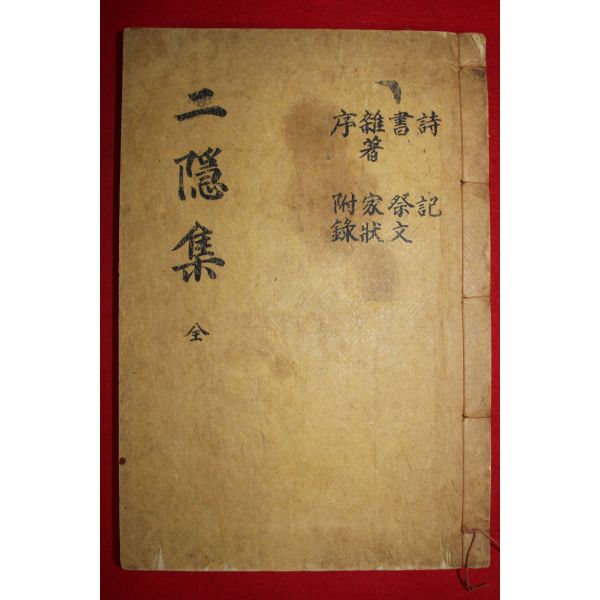 詩 記
書 祭文
雜著 家狀
序 附錄
二隱集 全